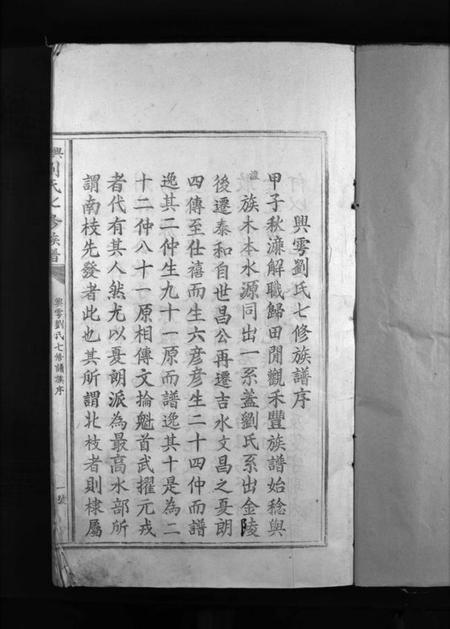 興雩劉氏七修族譜序
甲子秋濂解職歸田閒觀禾豐族譜始稔與
族木本水源同出一系蓋劉氏系出金陵
後遷泰和自世昌公再遷吉水文昌之夏朗
四傳至仕禧而生六彦彦生二十四仲而譜
逸其二仲生九十一原而譜逸其十是為二
十二仲八十一原相傳文掄魁首武擢元戎
者代有其人然尤以夏朗派為最高水部所
謂南枝先發者此也其所謂北枝者則棣屬
興劉氏七修族譜
興雩劉氏七修譜族序
一號